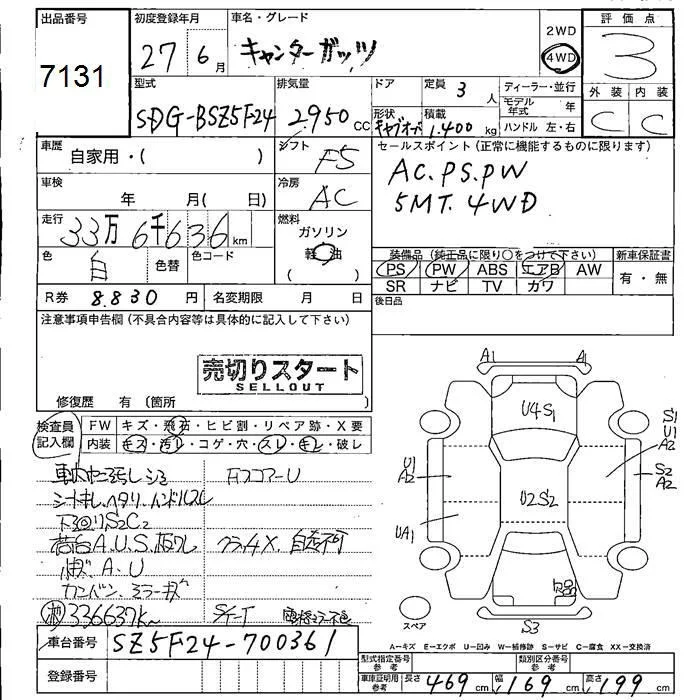 出品番号
7131
初度登録年月
27 6月
車名・グレード
キャンターガッツ
2WD
4WD
評価点
3
外装 内装
C C
型式
SDG-BSZ5F24
排気量
2950cc
ドア
形状
キャブオーバ
定員 3人
積載
1.400kg
ディーラー・並行
モデル年式 年
ハンドル 左・右
車歴
自家用・( )
シフト
F5
セールスポイント(正常に機能するものに限ります)
AC.PS.PW
5MT.4WD
車検
年 月( 日)
冷房
AC
走行
33万6千636km
燃料
ガソリン
軽油
( )
色
白
色替
色コード
装備品(純正品に限り○をつけて下さい)
PS PW ABS エアB AW
SR ナビ TV カワ
新車保証書
有・無
R券 8.830円
名変期限 月 日
後日品
注意事項申告欄(不具合内容等は具体的に記入して下さい)
売切りスタート
SELLOUT
修復歴 有(箇所 )
検査員記入欄
FW キズ・飛石・ヒビ割・リペア跡・X要
内装 キズ・汚レ・コゲ・穴・スレ・キレ・破レ
下回りS2C2
荷台A.U.S.
A.U
カンバン.ミラーキズ
336637k
自走不可
A1 A1
U4S1
U2S2
U1
A2
UA1
S1
U1
A2
S2
A2
欠品
S3
スペア
A-キズ E-エクボ U-凹み W-補修跡 S-サビ C-腐食 XX-交換済
車台番号
SZ5F24-700361
登録番号
型式指定番号参考
類別区分番号参考
車庫証明用参考
長さ 469cm 幅 169cm 高さ 199cm